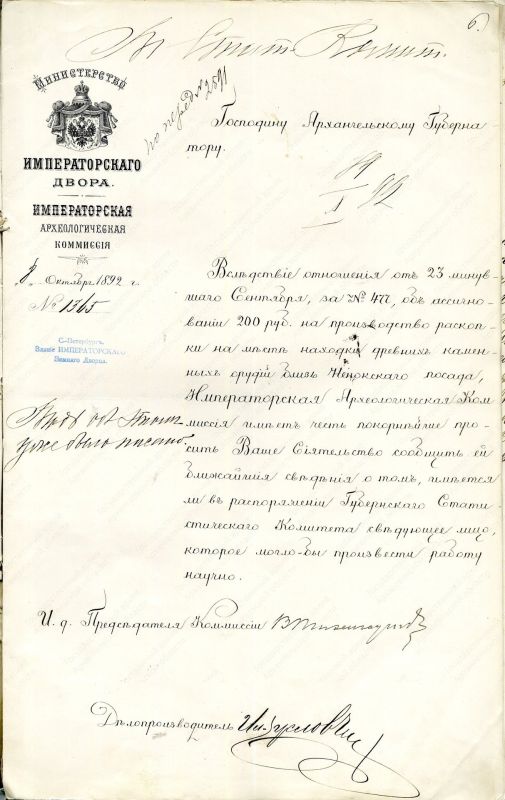 6.
Въ Стат. Комит.
Министерство
ИМПЕРАТОРСКАГО
ДВОРА.
ИМПЕРАТОРСКАЯ
АРХЕОЛОГИЧЕСКАЯ
КОММИССІЯ
„8„ Октября 1892 г.
№ 1365
С.-Петербургъ.
Зданіе ИМПЕРАТОРСКАГО
Зимняго Дворца.
№ 2591
Господину Архангельскому Губерна-
тору.
Вслѣдствіе отношенія отъ 23 минув-
шаго Сентября, за № 477, объ ассигно-
ваніи 200 руб. на производство раскоп-
ки на мѣстѣ находки древнихъ камен-
ныхъ орудій близъ Ненокскаго посада,
Императорская Археологическая Ком-
миссія имѣетъ честь покорнѣйше про-
сить Ваше Сіятельство сообщить ей
ближайшія свѣдѣнія о томъ, имѣется
ли въ распоряженіи Губернскаго Стати-
стическаго Комитета свѣдующее лицо,
которое могло-бы произвести работу
научно.
объ этомъ
уже было писано.
И. д. Предсѣдателя Коммиссіи
Дѣлопроизводитель